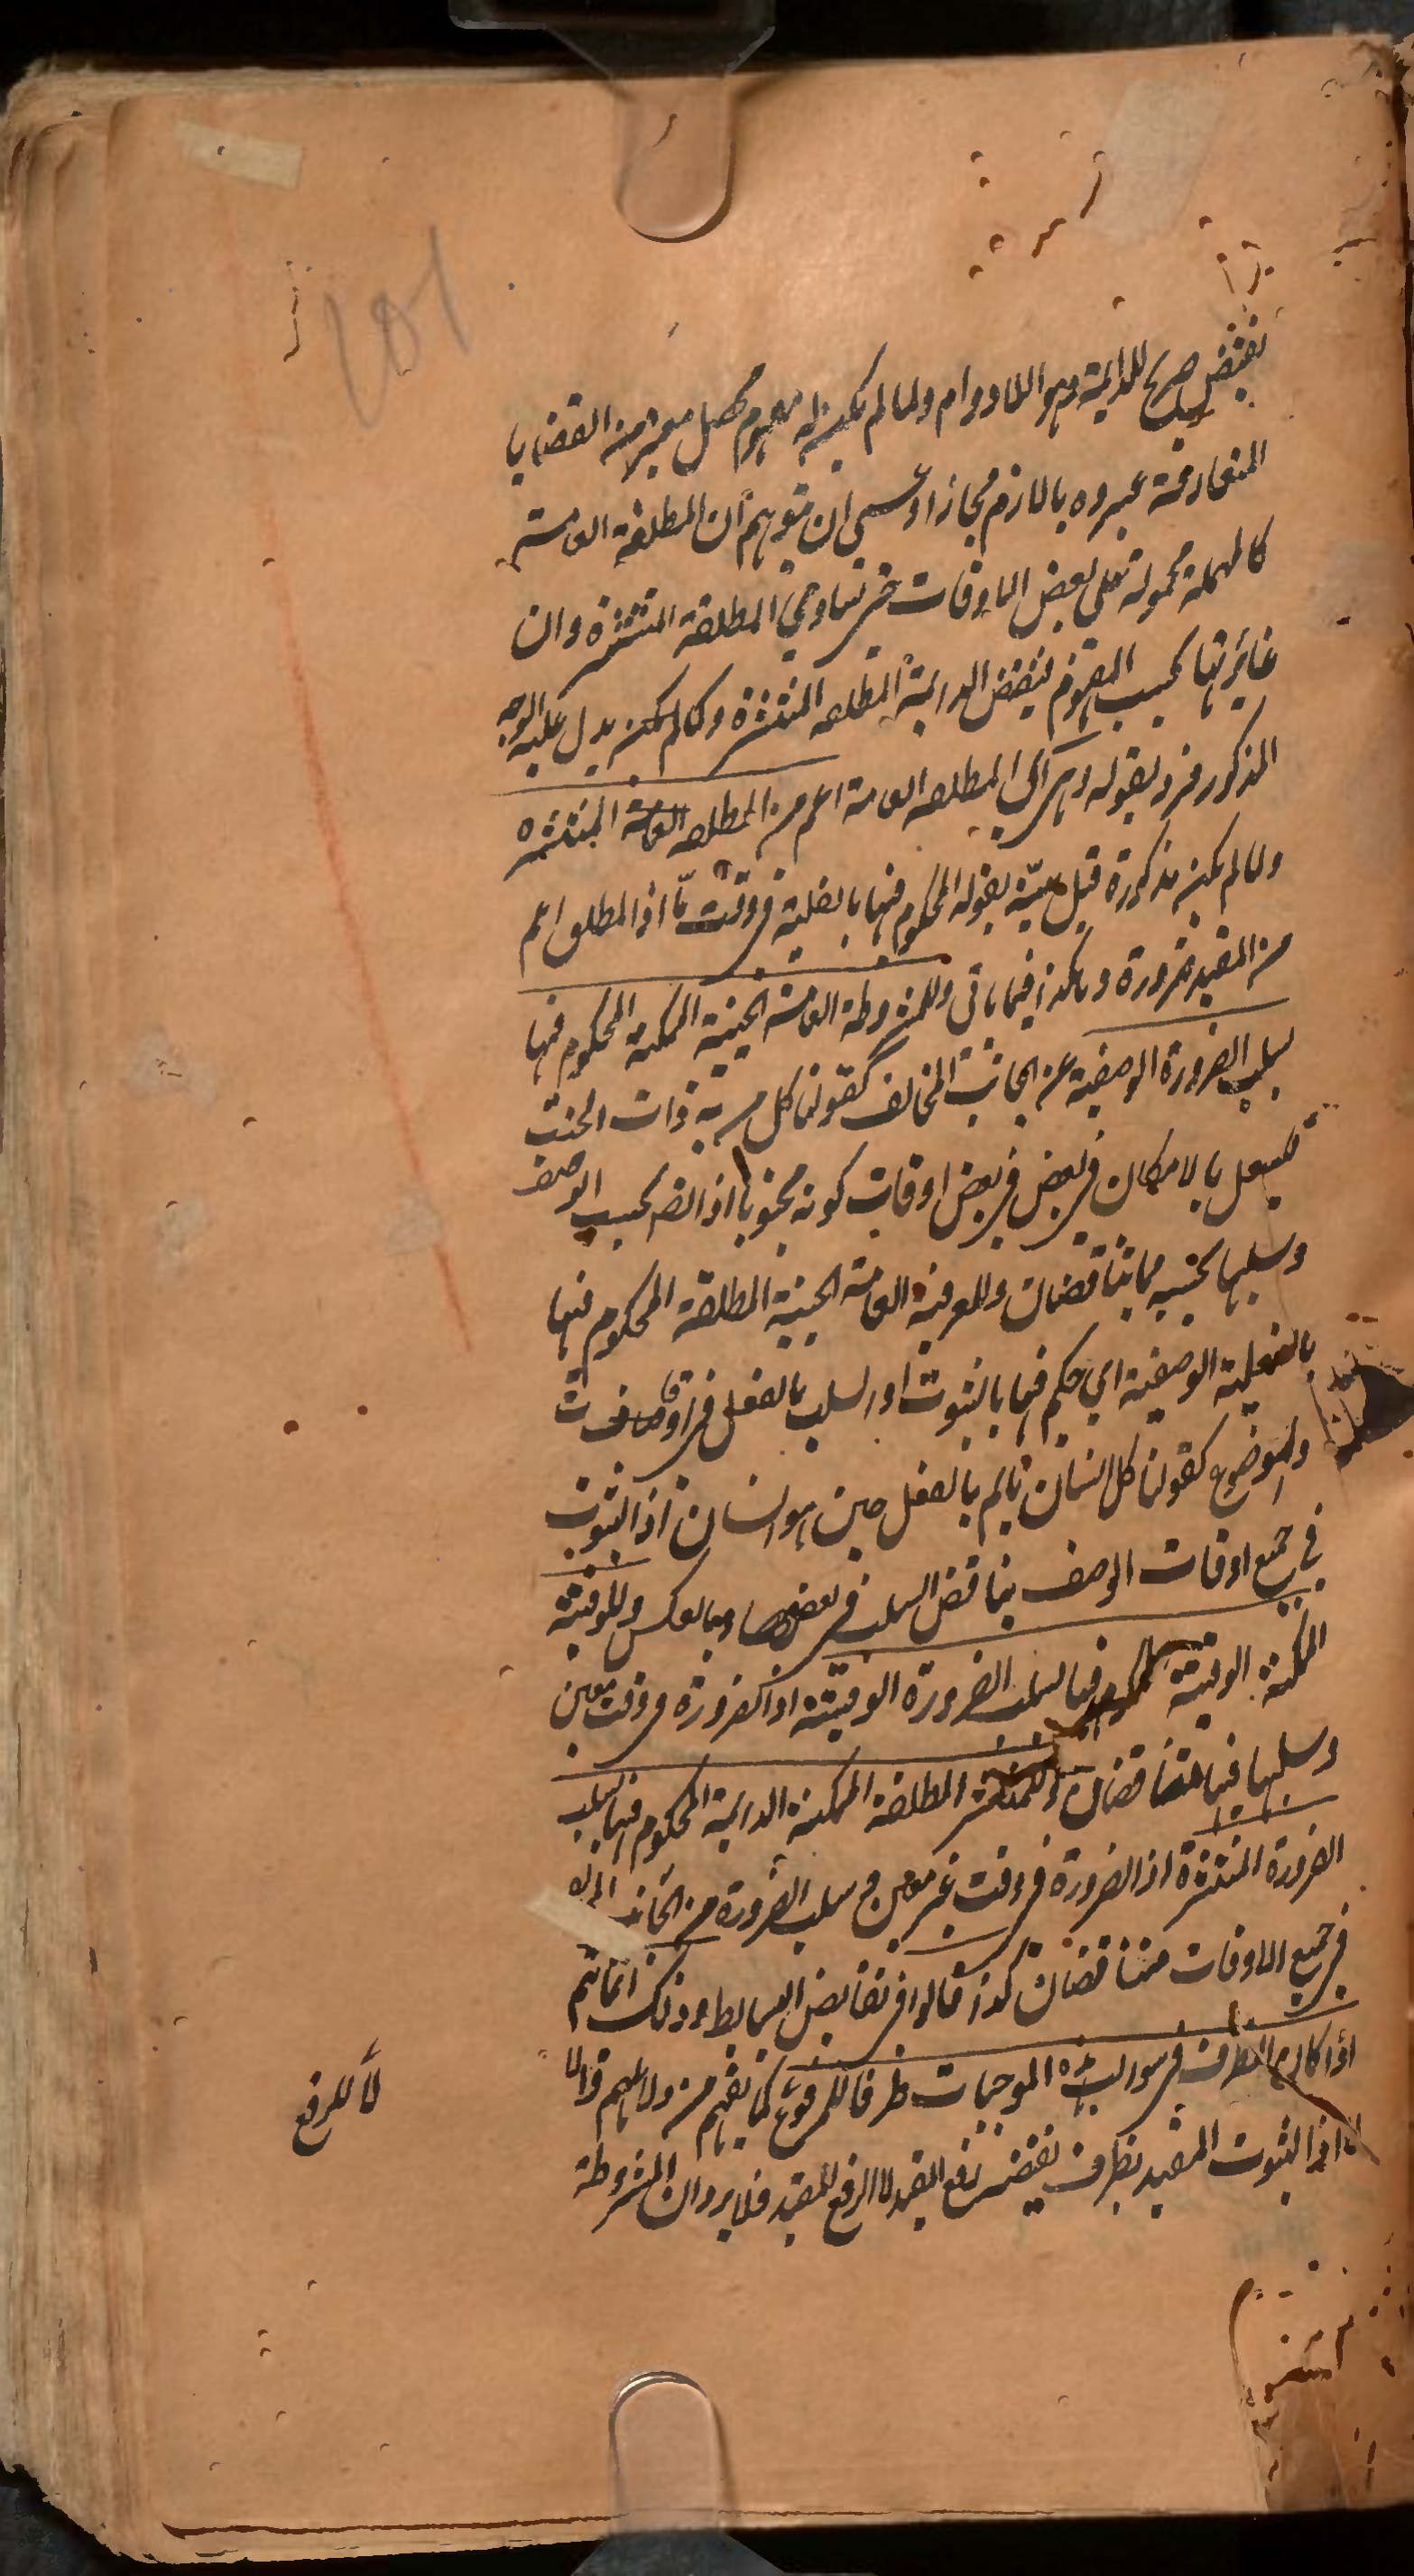 نقيض صريح للدايمة وهو اللادوام ولما لم يكن له مفهوم محصل معتبر من القضايا
المتعارفة عبروه باللازم مجازا وعسى ان يتوهم ان المطلقة العامة
كالمهملة محمولة على بعض الاوقات فهي تساوي المطلقة المنتشرة وان
غايرتها بحسب المفهوم فنقيض الدايمة المطلقة المنتشرة وكما لم يكن يدل عليه الوجه
المذكور فزد بقوله وهى اي المطلقة العامة اعم من المطلقة العامة المنتشرة
ولما لم يكن مذكورة قبل بينه بقوله المحكوم فيها بالفعلية في وقت ما اذ المطلق اعم
من المقيد ضرورة وهكذا فيما ياتى وللمشروطة العامة الحينية الممكنة المحكوم فيها
بسلب الضرورة الوصفية عن الجانب المخالف كقولنا كل من به ذات الجنب
يسعل بالامكان في بعض اوقات كونه مجنوبا اذ الضرورة بحسب الوصف
وسلبها بحسبه مما يتناقضان وللعرفية العامة الحينية المطلقة المحكوم فيها
بالفعلية الوصفية اي حكم فيها بالثبوت او السلب بالفعل في اوقات وصف ذات
الموضوع كقولنا كل انسان نايم بالفعل حين هو انسان اذ الثبوت
في جميع اوقات الوصف يناقض السلب في بعضها وبالعكس وللوقتية
الممكنة الوقتية المحكوم فيها بسلب الضرورة الوقتية اذ الضرورة في وقت معين
وسلبها فيها متناقضان وللمنتشرة المطلقة الممكنة الدايمة المحكوم فيها بسلب
الضرورة المنتشرة اذ الضرورة في وقت غير معين وسلب الضرورة من الجانب
في جميع الاوقات متناقضان كذا قالوا في نقايض البسايط وذلك انما يتم
اذا كان الظرف في سوالب هذه الموجبات ظرفا للمرفوع كما يفهم من دلائلهم
اذ الثبوت المقيد بظرف نقيضه رفع المقيد لا الرفع المقيد فلا يرد ان المشروطة
لا للرفع